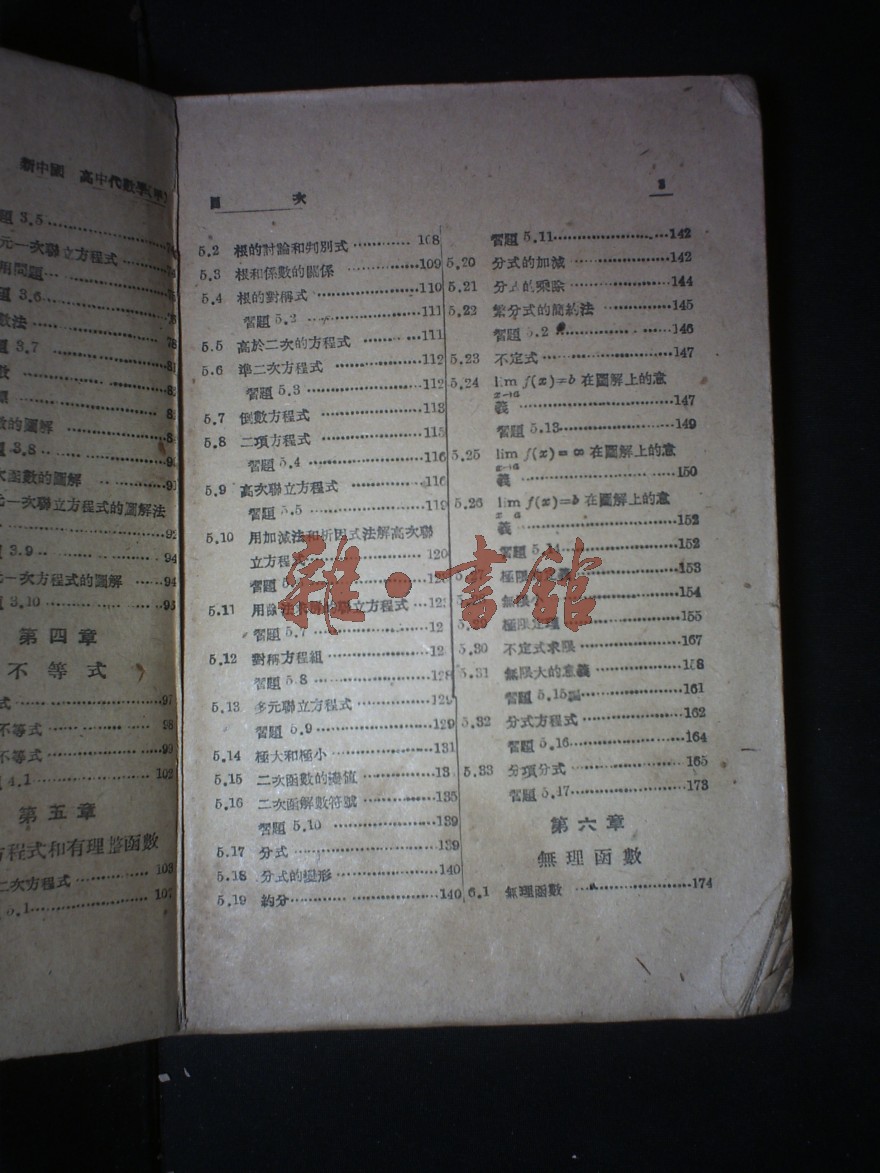 新中國 高中代數學(甲)
題 3.5
元一次聯立方程式 74
用問題
題 3.6
數法 78
題 3.7
數
的圖解
題 3.8
次函數的圖解 91
元一次聯立方程式的圖解法
92
題 3.9 94
元一次方程式的圖解 94
題 3.10 95
第四章
不等式
式 97
不等式 98
不等式 99
4.1 102
第五章
方程式和有理整函數
二次方程式 103
5.1 107
目 次 3
5.2 根的討論和判別式 108
5.3 根和係數的關係 109
5.4 根的對稱式 110
習題 5.2 111
5.5 高於二次的方程式 111
5.6 準二次方程式 112
習題 5.3 112
5.7 倒數方程式 113
5.8 二項方程式 115
習題 5.4 116
5.9 高次聯立方程式 116
習題 5.5 119
5.10 用加減法和析因式法解高次聯
立方程式 120
習題 5.
5.11 用除法 聯立方程式
習題 5.7 12
5.12 對稱方程組 12
習題 5.8 128
5.13 多元聯立方程式 129
習題 5.9 129
5.14 極大和極小 131
5.15 二次函數的邊值 13
5.16 二次函解數符號 135
習題 5.10 139
5.17 分式 139
5.18 分式的變形 140
5.19 約分 140
習題 5.11 142
5.20 分式的加減 142
5.21 分式的乘除 144
5.22 繁分式的簡約法 145
習題 5.2 146
5.23 不定式 147
5.24 lim f(x)=b 在圖解上的意
x→a
義 147
習題 5.13 149
5.25 lim f(x)=∞ 在圖解上的意
x→a
義 150
5.26 lim f(x)=b 在圖解上的意
x a
義 152
習題 5.14 152
5.27 極限的定義 153
無限小 154
5.29 極限定理 155
5.30 不定式求限 167
5.31 無限大的意義 158
習題 5.15 161
5.32 分式方程式 162
習題 5.16 164
5.33 分項分式 165
習題 5.17 173
第六章
無理函數
6.1 無理函數 174
雜·書館